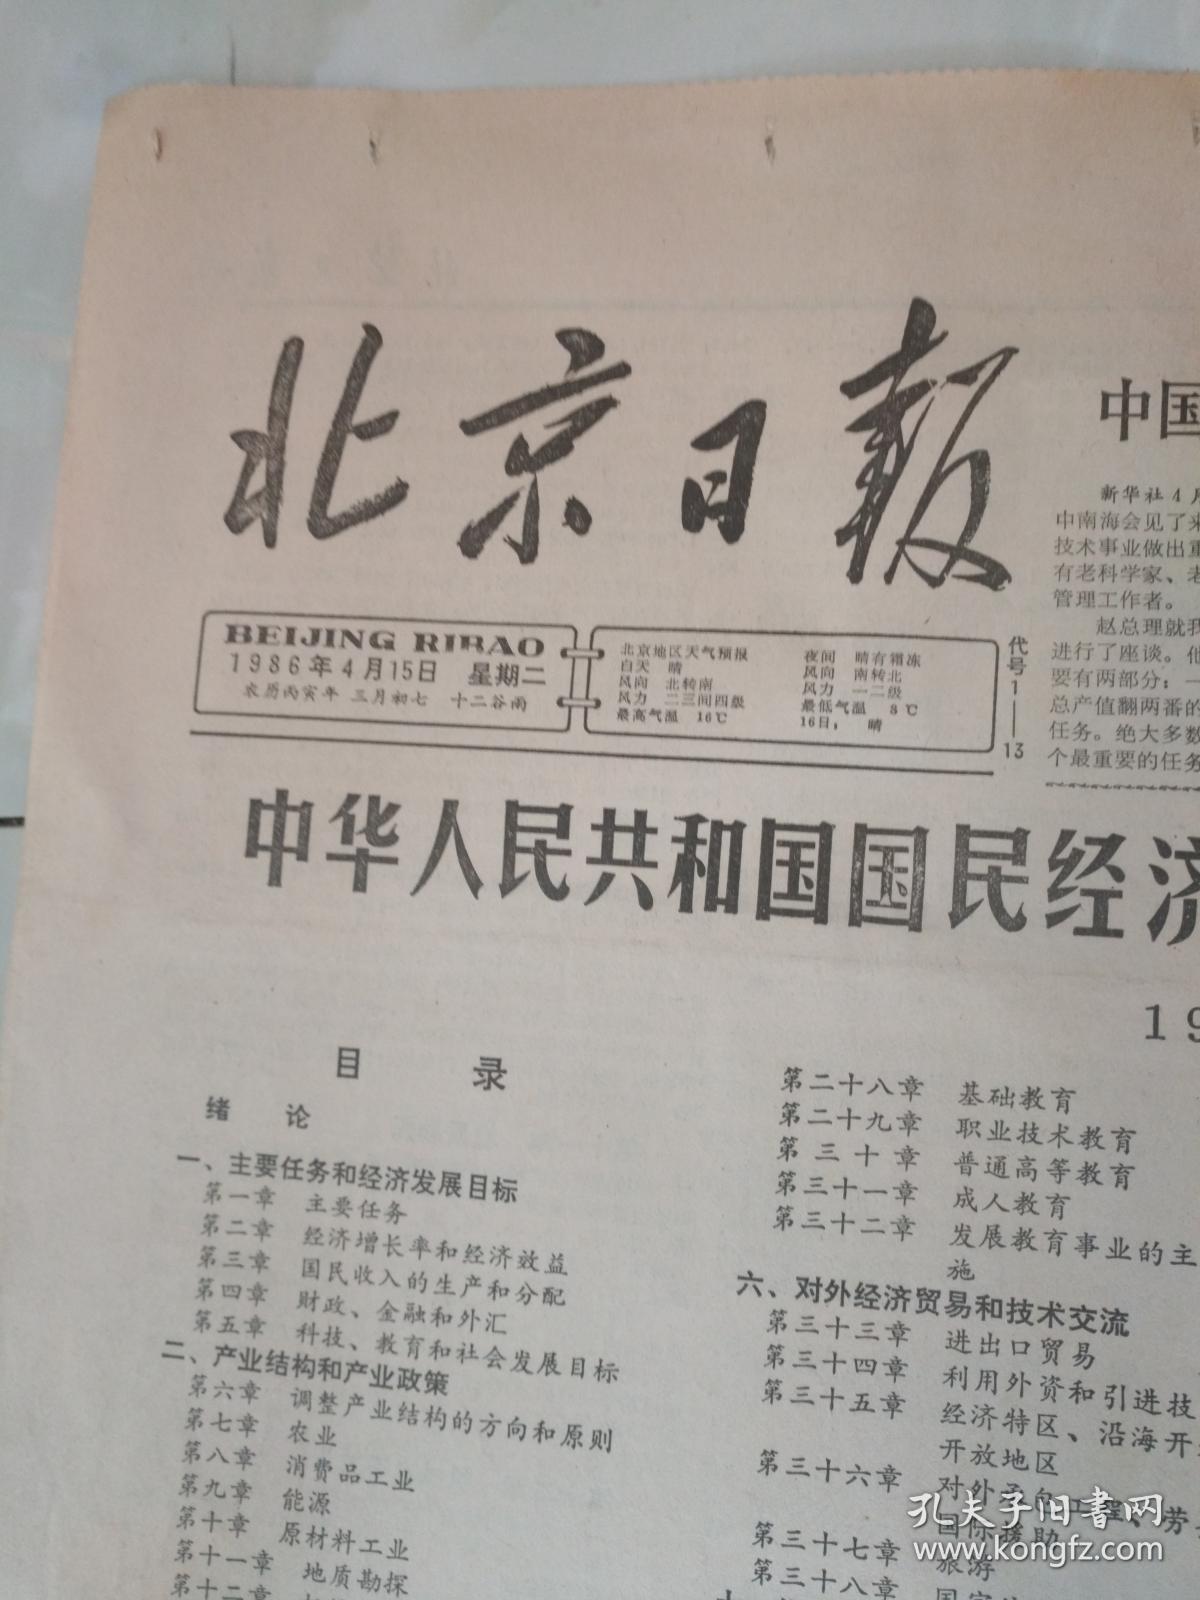 北京日报
BEIJING RIBAO
1986年4月15日 星期二
农历丙寅年 三月初七 十二谷雨
北京地区天气预报
白天 晴
风向 北转南
风力 二三间四级
最高气温 16℃
夜间 晴有霜冻
风向 南转北
风力 一二级
最低气温 3℃
16日: 晴
代号1—13
中国
新华社4月
中南海会见了来
技术事业做出重
有老科学家、老
管理工作者。
赵总理就我
进行了座谈。他
要有两部分:一
总产值翻两番的
任务。绝大多数
个最重要的任务
中华人民共和国国民经济
19
目 录
绪 论
一、主要任务和经济发展目标
第一章 主要任务
第二章 经济增长率和经济效益
第三章 国民收入的生产和分配
第四章 财政、金融和外汇
第五章 科技、教育和社会发展目标
二、产业结构和产业政策
第六章 调整产业结构的方向和原则
第七章 农业
第八章 消费品工业
第九章 能源
第十章 原材料工业
第十一章 地质勘探
第十二章
第二十八章 基础教育
第二十九章 职业技术教育
第三十章 普通高等教育
第三十一章 成人教育
第三十二章 发展教育事业的主
施
六、对外经济贸易和技术交流
第三十三章 进出口贸易
第三十四章 利用外资和引进技
第三十五章 经济特区、沿海开
开放地区
第三十六章 对外承包工程、劳
国际援助
第三十七章 旅游
第三十八章
孔夫子旧书网
www.kongfz.com